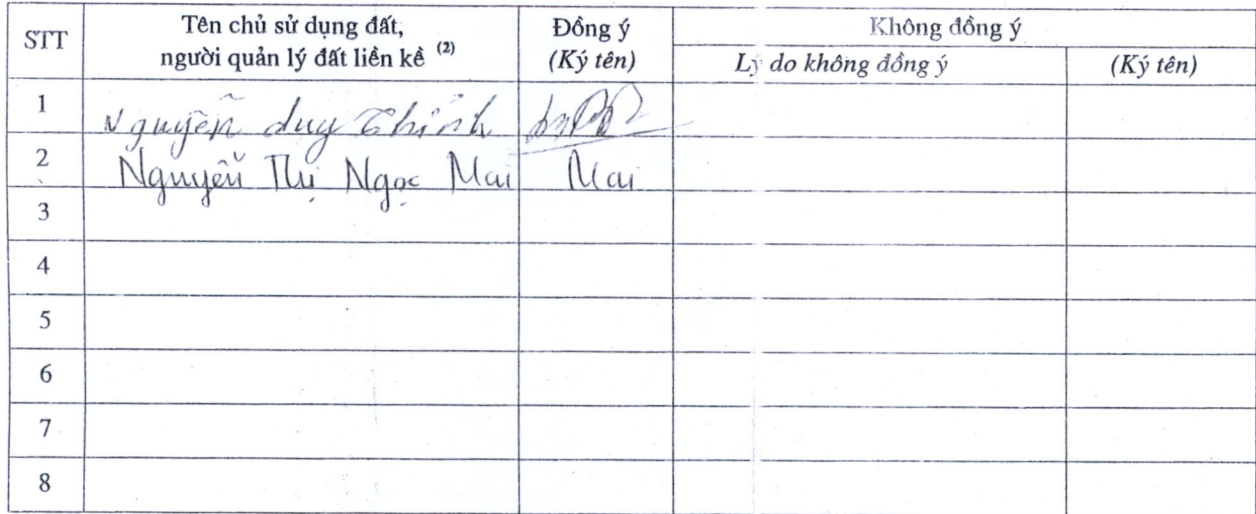 STT Tên chủ sử dụng đất, người quản lý đất liền kề (2) Đồng ý (Ký tên) Không đồng ý
Lý do không đồng ý (Ký tên)
1 Nguyễn duy Thỉnh
2 Nguyễn Thị Ngọc Mai Mai
3
4
5
6
7
8